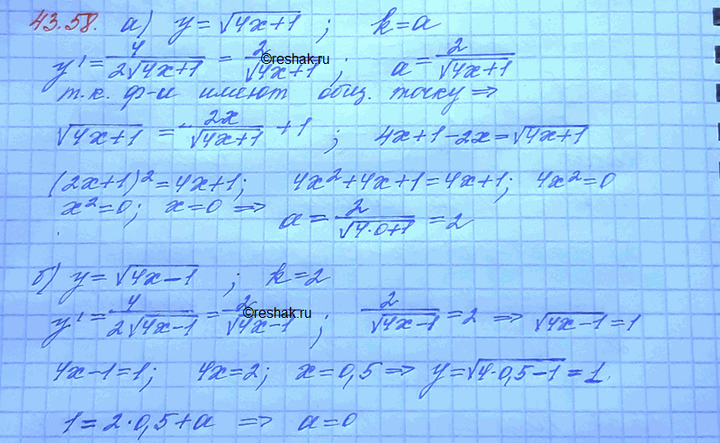 43.58. а) y = √(4x+1) ; k = a
y' = 4/(2√(4x+1)) = 2/√(4x+1) ; a = 2/√(4x+1)
©reshak.ru
т.к. ф-и имеют общ. точку ⇒
√(4x+1) = 2x/√(4x+1) + 1 ; 4x+1-2x = √(4x+1)
(2x+1)² = 4x+1; 4x²+4x+1 = 4x+1; 4x² = 0
x² = 0; x = 0 ⇒ a = 2/√(4·0+1) = 2
б) y = √(4x-1) ; k = 2
y' = 4/(2√(4x-1)) = 2/√(4x-1) ; 2/√(4x-1) = 2 ⇒ √(4x-1) = 1
©reshak.ru
4x-1 = 1; 4x = 2; x = 0,5 ⇒ y = √(4·0,5-1) = 1.
1 = 2·0,5+a ⇒ a = 0